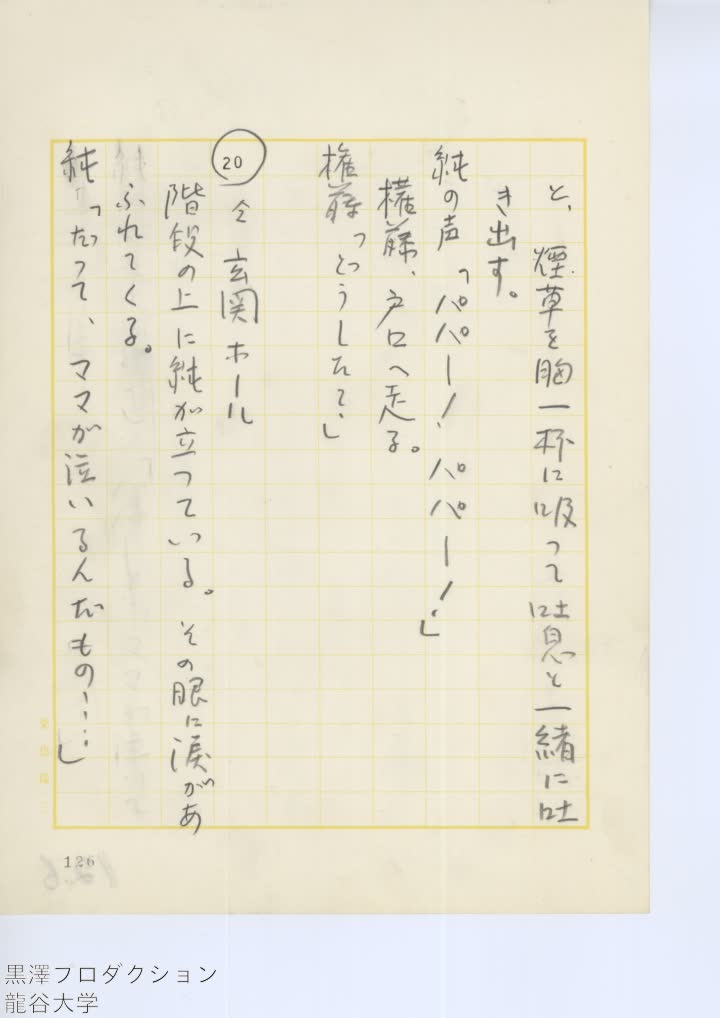 と、煙草を胸一杯に吸って吐息と一緒に吐
き出す。
純の声「パパー！パパー！」
権藤、戸口へ走る。
権藤「どうした？」
20 仝 玄関ホール
階段の上に純が立っている。その眼に涙があ
ふれてくる。
純「だって、ママが泣いるんだもの……」
126
黒澤プロダクション
龍谷大学